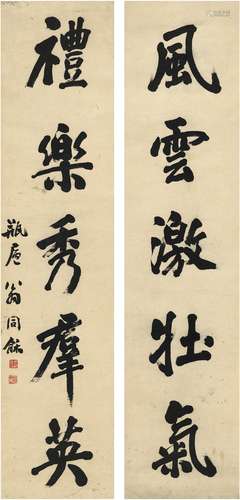 風雲激壮氣
禮樂秀羣英
瓶廬翁同龢